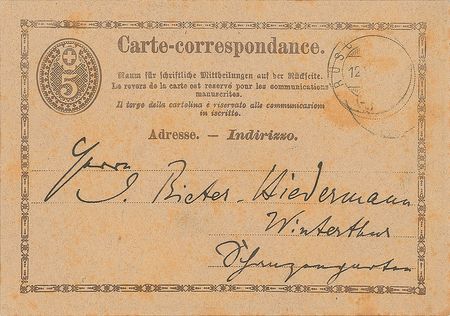 5
Carte-correspondance.
Raum für schriftliche Mittheilungen auf der Rückseite.
Le revers de la carte est réservé pour les communications
manuscrites.
Il tergo della cartolina è riservato alle communicazioni
in iscritto.
Adresse. — Indirizzo.
RÜSH
12
Herrn
J. Bieter-Hiedermann
Winterthur